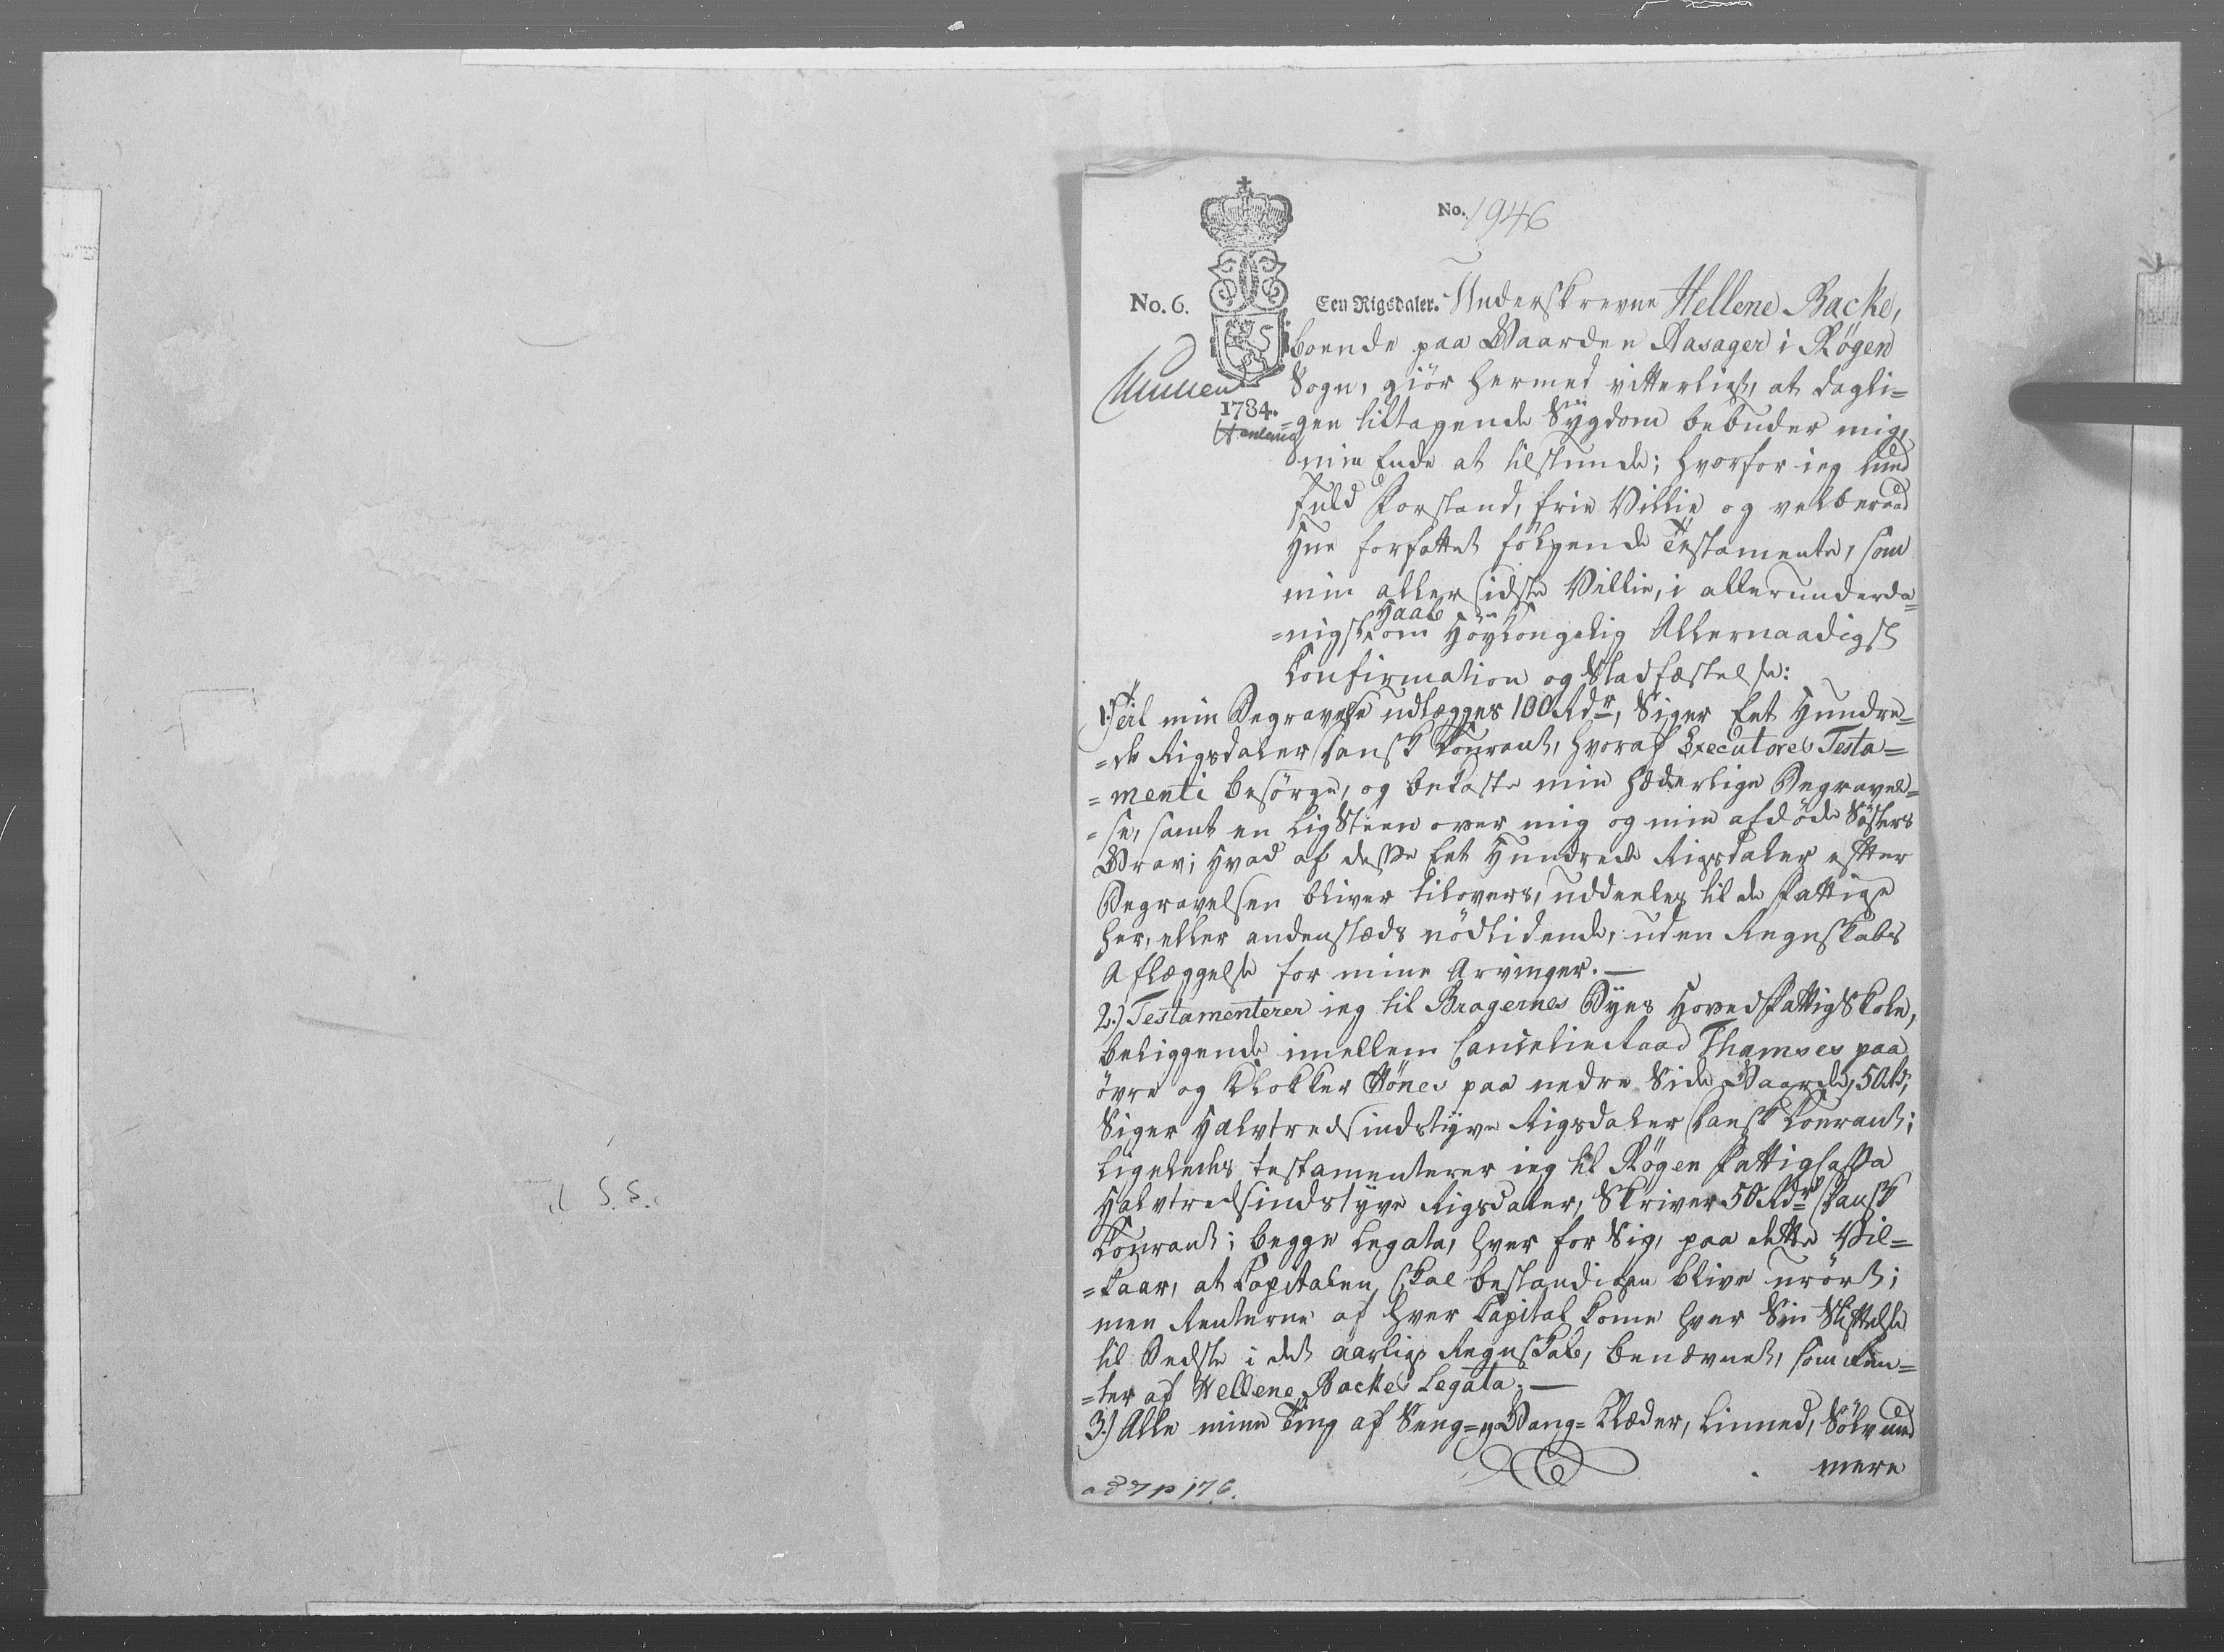 No. 1946
No. 6.
Een Rigsdaler. Underskrevne Hellene Backe,
boende paa Gaarden Aasager i Røgen
Sogn, giör hermed vitterligt, at dagli=
1784.
=gen tiltagende Sÿgdom bebuder mig,
min Ende at tilstunde; hvorfor ieg med
fuld Forstand, frie Villie og velberaad
Hue forfattet fölgende Testamente, som
min aller sidste Villie, i allerunderda=
=nigst Haab om Höÿkongelig Allernaadigst
Confirmation og Stadfæstelse:
1.) Til min Begravelse udlægges 100 Rdr, Siger Eet Hundre=
=de Rigsdaler dansk Courant, hvoraf Executores Testa=
=menti besörge, og bekoste min hæderlige Begravel=
=se, samt en Ligsteen over mig og min afdöde Sösters
Grav; Hvad af disse Eet Hundrede Rigsdaler efter
Begravelsen bliver tilovers, uddeeles til de Fattige
her, eller andenstæds nödlidende, uden Regnskabs
Aflæggelse for mine Arvinger.—
2.) Testamenterer ieg til Bragernes Byes Hoved Fattig Skole,
beliggende imellem Cancelieraad Thamses paa
övre og Klokker Hönes paa nedre Side Gaarde, 50 Rd,
Siger Halvtredsindstÿve Rigsdaler dansk Courant;
Ligeledes testamenterer ieg til Røgen Fattigcassa
Halvtredsindstÿve Rigsdaler, Skriver 50 Rdr dansk
Courant; begge Legata, hver for Sig, paa dette Vil=
=kaar, at Capitalen skal bestandigen blive urört;
men Renterne af hver Capital kome hver Sin Stiftelse
til Bedste i det aarlige Regnskab, benævnet, som Ren=
=ter af Hellene Backes Legata.—
3.) Alle mine Ting af Seng= og Gang= Klæder, Linned, Sölv med
mere
ad 7 p 176.
til S.S.